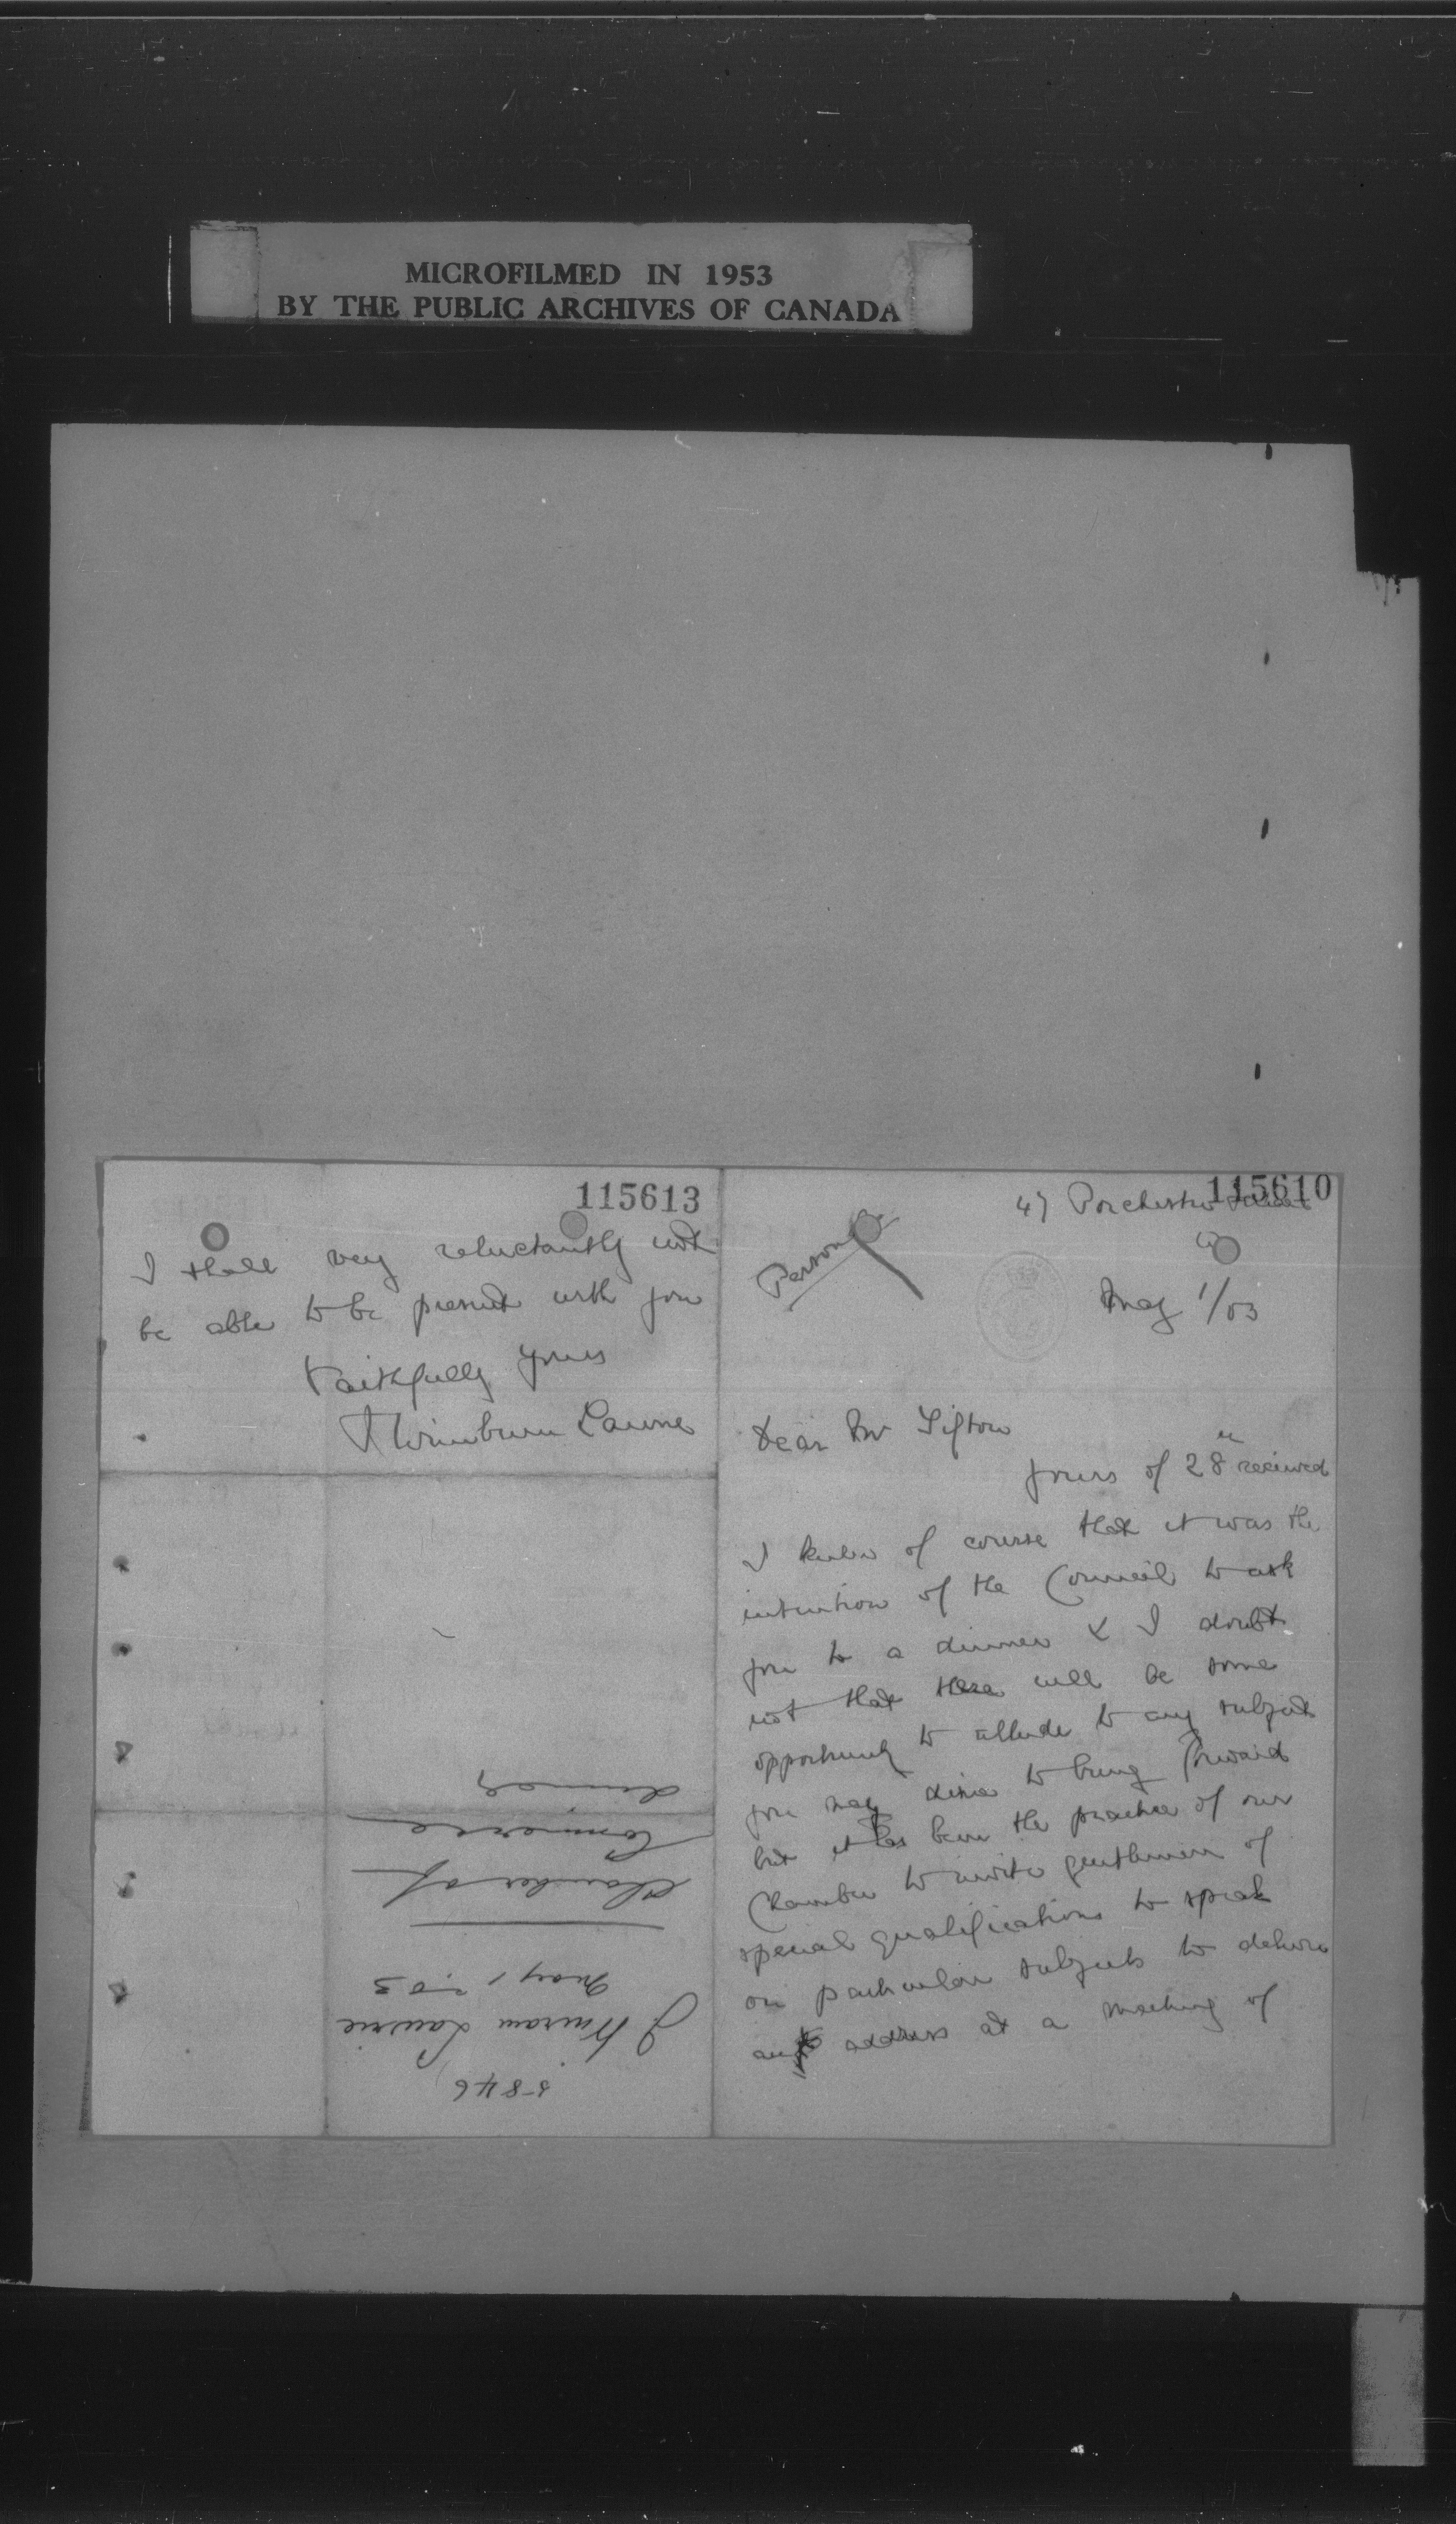 MICROFILMED IN 1953
BY THE PUBLIC ARCHIVES OF CANADA
115613
I shall very reluctantly not
be able to be present with you
Faithfully yours
J Wimburn Laurie
5846
J Wimburn Laurie
May 1 - 03
Chamber of
Commerce
dinner
115610
47 Porchester
W
Personal
May 1/03
Dear Mr Sifton
yours of 28th received
I knew of course that it was the
intention of the Council to ask
you to a dinner & I doubt
not that there will be some
opportunity to allude to any subject
you may desire to bring forward
but it has been the practice of our
Chamber to invite gentlemen of
special qualifications to speak
on particular subjects to deliver
an address at a meeting of